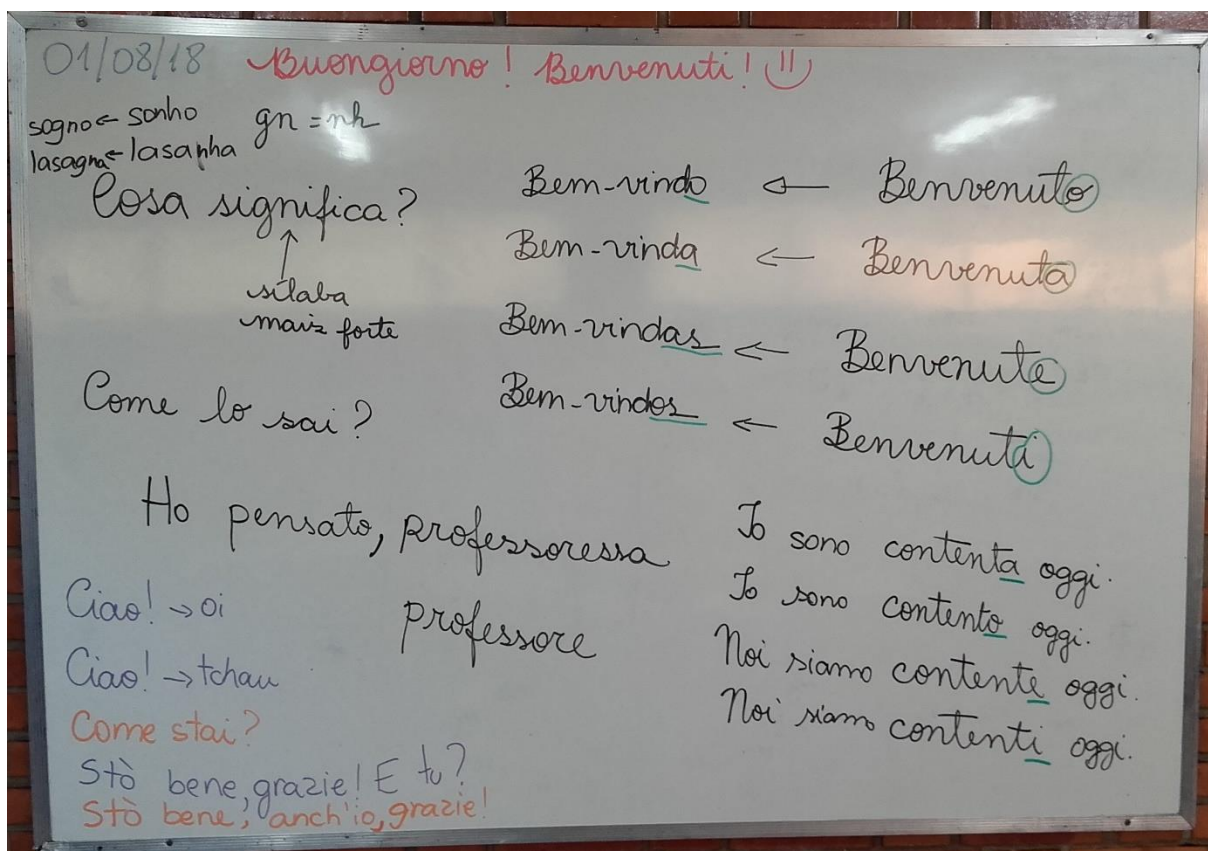 01/08/18 Buongiorno! Benvenuti! :)
sogno ← sonho gn = nh
lasagna ← lasanha
Cosa significa?
↑
sílaba
mais forte
Bem-vindo ← Benvenuto
Bem-vinda ← Benvenuta
Bem-vindas ← Benvenute
Bem-vindos ← Benvenuti
Come lo sai?
Ho pensato, professoressa
professore
Io sono contenta oggi.
Io sono contento oggi.
Noi siamo contente oggi.
Noi siamo contenti oggi.
Ciao! → oi
Ciao! → tchau
Come stai?
Stò bene, grazie! E tu?
Stò bene, anch'io, grazie!